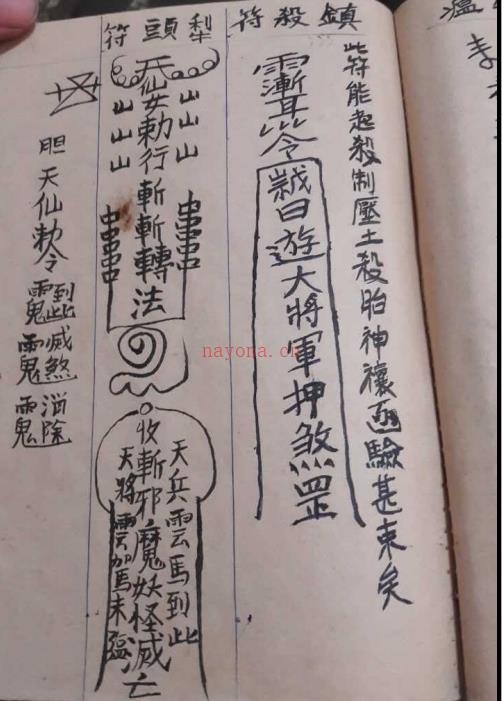 鎮殺符
此符能起殺制壓土殺胎神禳凾驗甚束矣
令
日遊大將軍押煞罡
犁頭符
天仙女勅行斬斬轉法
山山山
山山山
串串串
串串串
收斬邪魔妖怪滅亡
天兵雲馬到此
天將雲加馬來臨
胆天仙勅令
到此滅煞消除
nayona.cn
溫